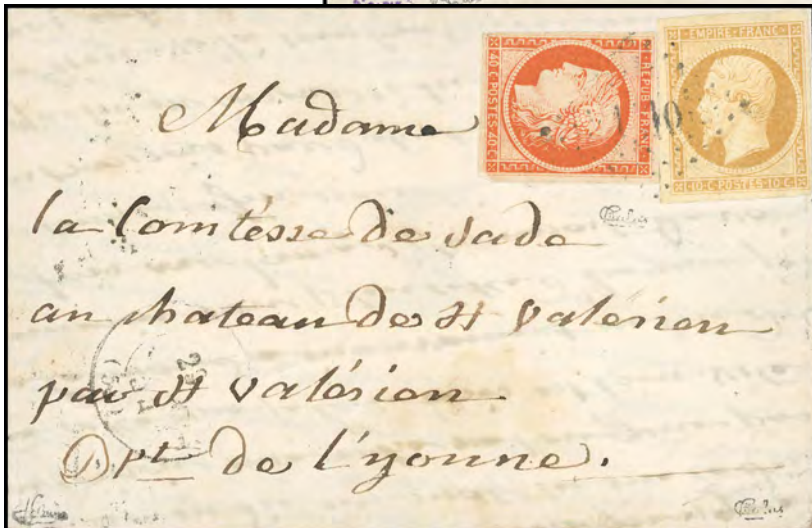 40 C. POSTES 40 C.
REPUB. FRANC.
EMPIRE FRANC.
10 C. POSTES 10 C.
Madame
la Comtesse de Sade
au chateau de St Valérien
par St Valérien
Dpt de l'yonne.
Calves
Calves